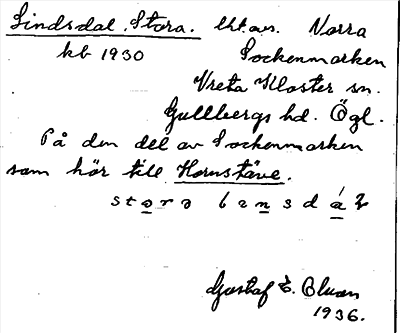 Lindsdal, Stora. lht. av. Norra
kb 1930 Sockenmarken
Vreta Kloster sn.
Gullbergs hd. Ögl.
På den del av Sockenmarken
som hör till Hornstäve.
Gustaf E.
1936.